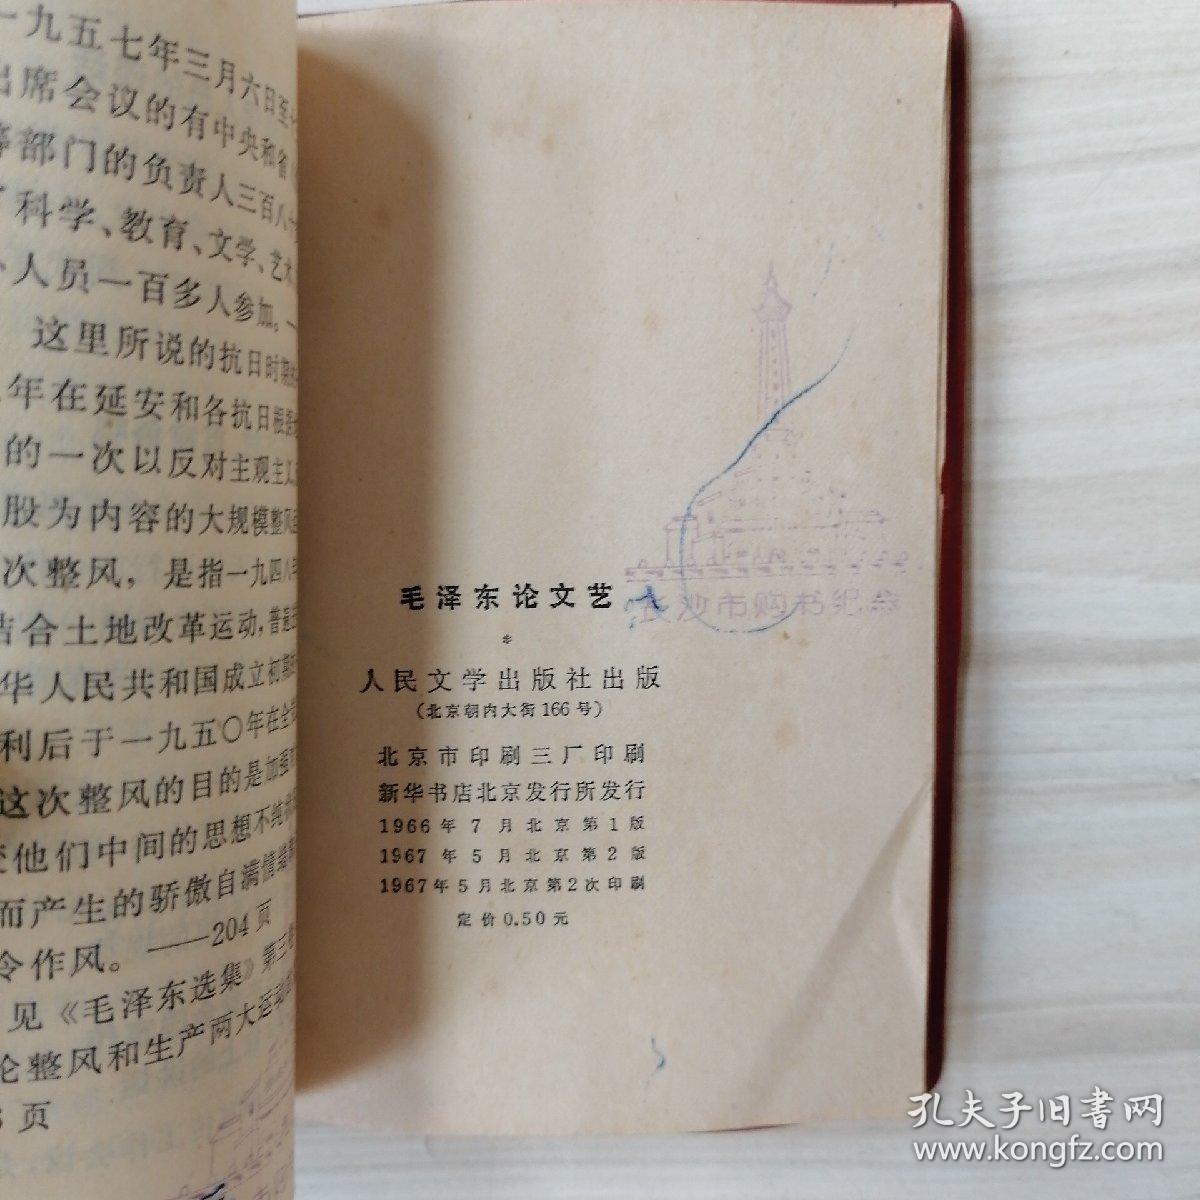 一九五七年三月六日至十
出席会议的有中央和省
等部门的负责人三百八十
科学、教育、文学、艺术
人员一百多人参加。
这里所说的抗日时期
年在延安和各抗日根据
的一次以反对主观主义
股为内容的大规模整风
次整风，是指一九四八年
结合土地改革运动，普遍
华人民共和国成立初期
利后于一九五〇年在全
这次整风的目的是加强
他们中间的思想不纯
而产生的骄傲自满情绪
令作风。——204页
见《毛泽东选集》第三卷
论整风和生产两大运动
页
毛泽东论文艺
*
人民文学出版社出版
（北京朝内大街166号）
北京市印刷三厂印刷
新华书店北京发行所发行
1966年7月北京第1版
1967年5月北京第2版
1967年5月北京第2次印刷
定价0.50元
长沙市购书纪念
孔夫子旧书网
www.kongfz.com